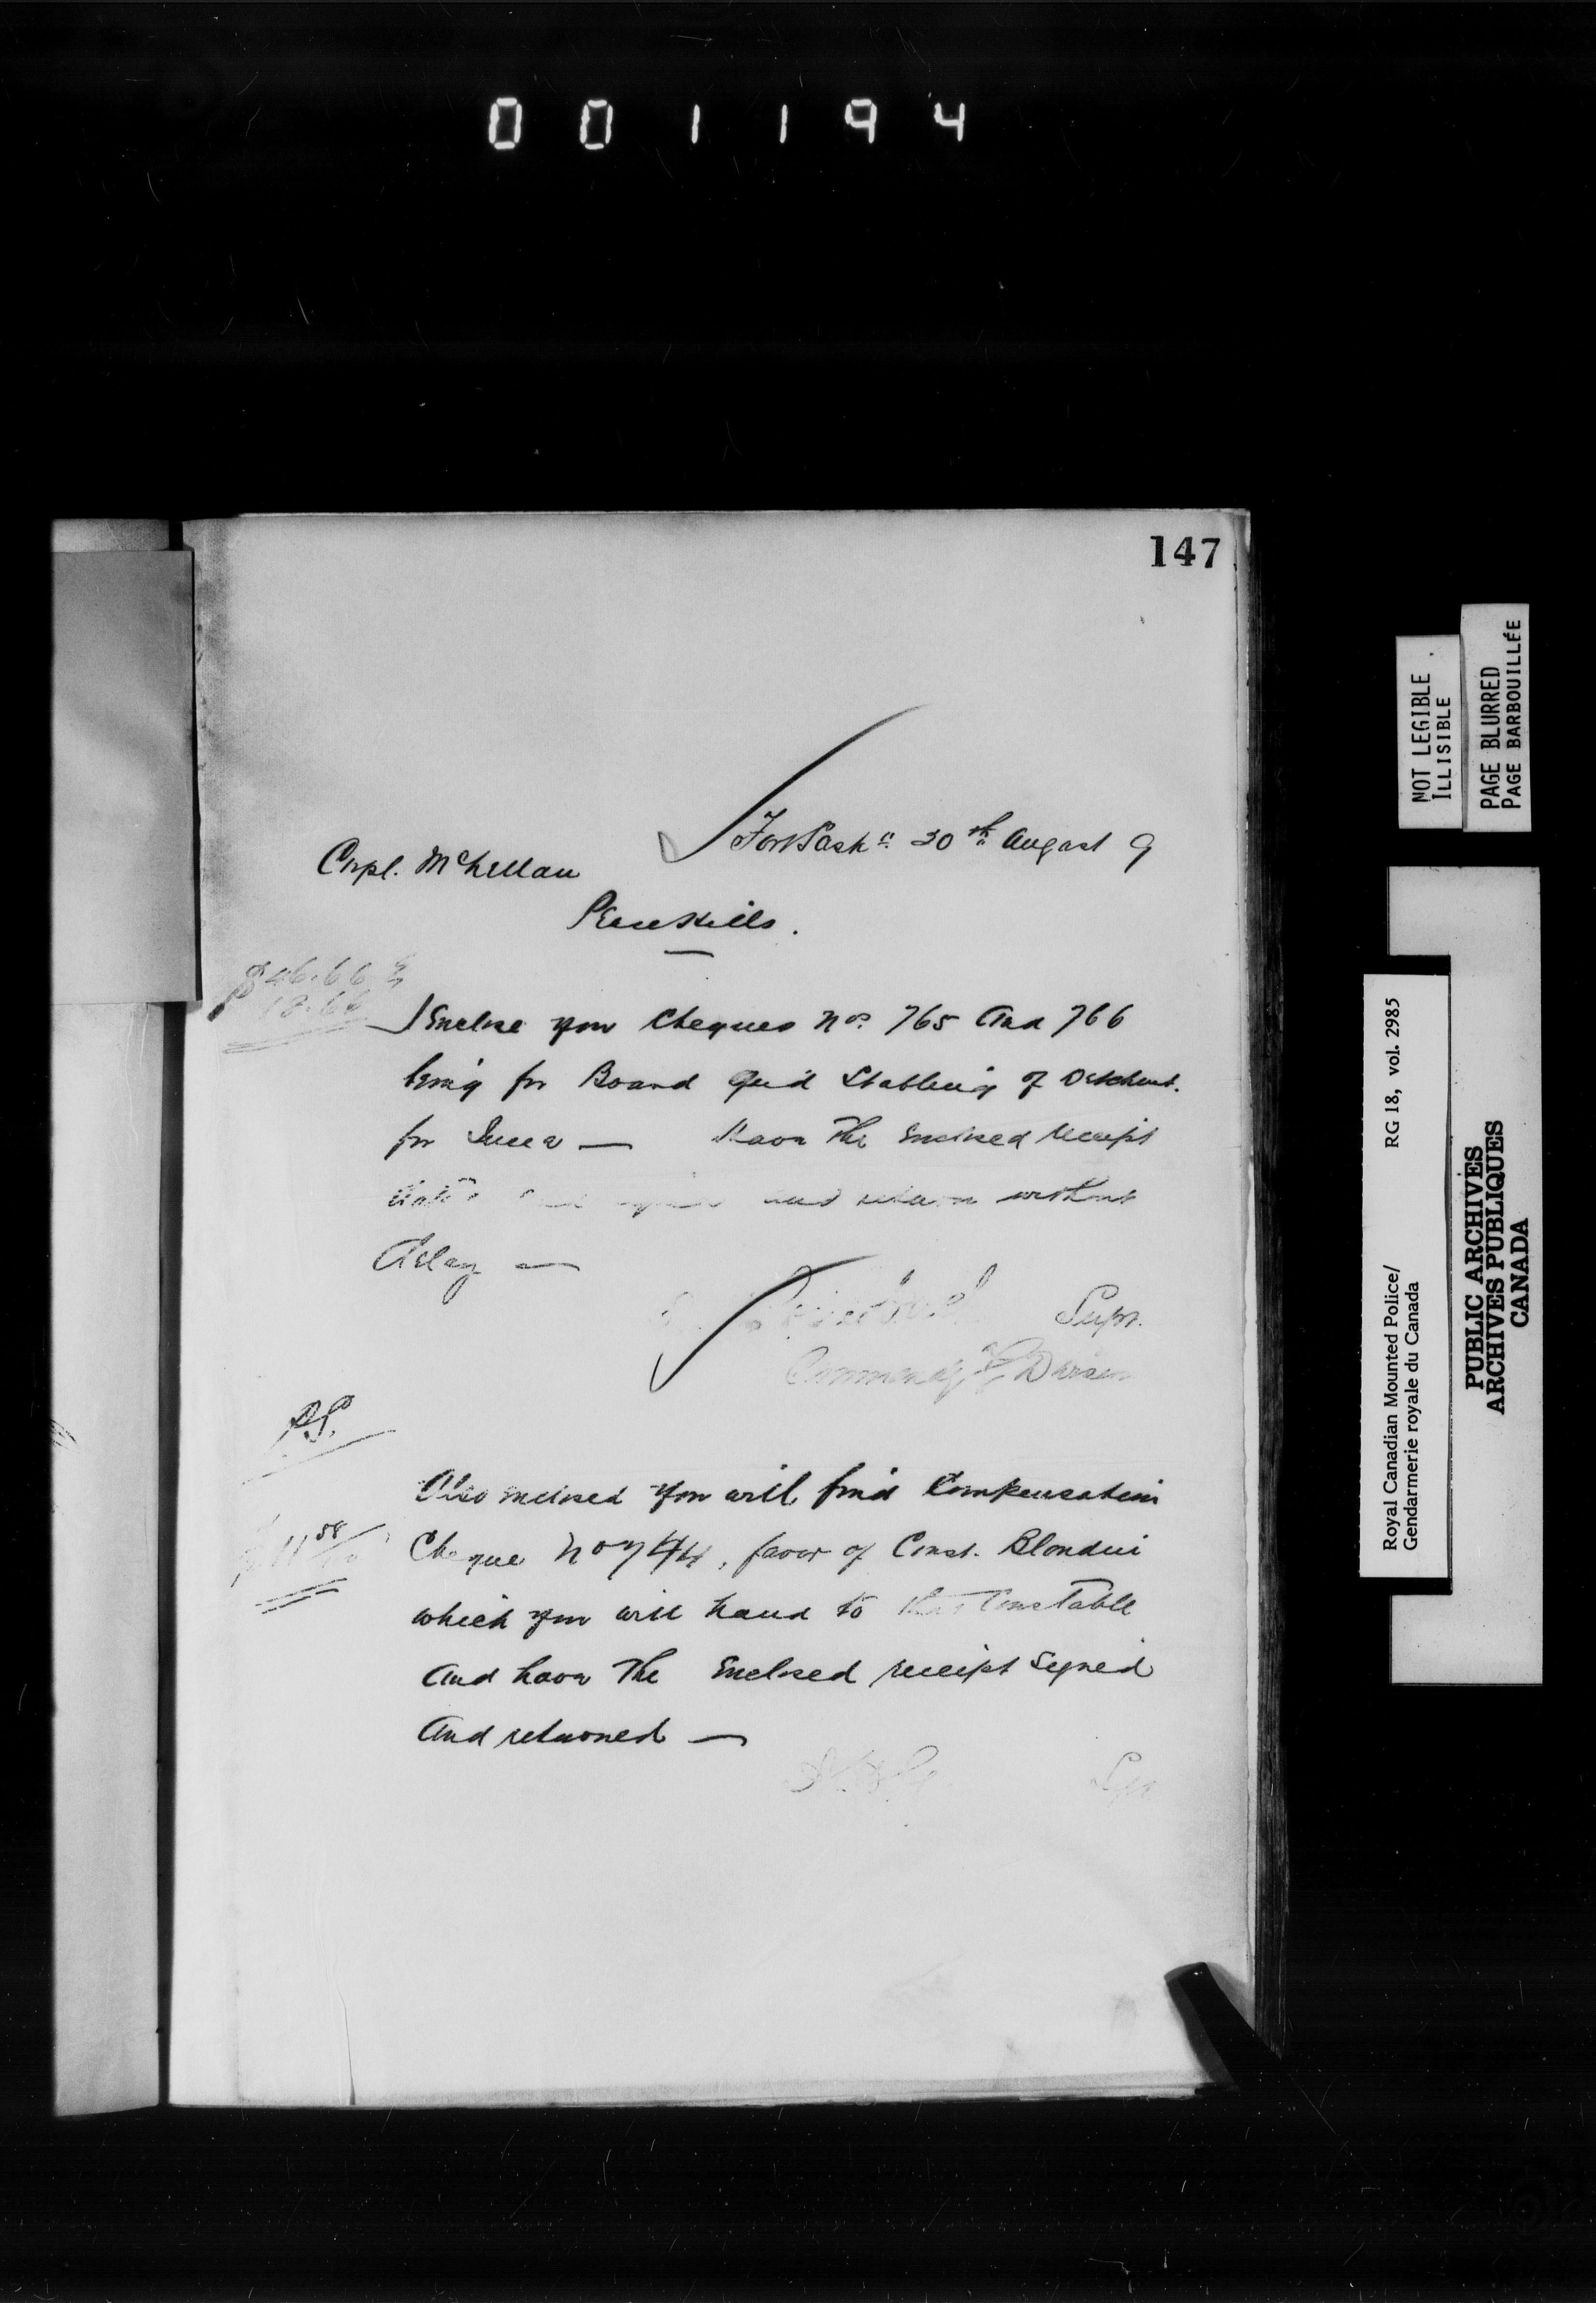 001194
147
Fort Sask n 30th August 9
Corpl. McLellan
Peace Hills.
$46.66
18.66
I Enclose you Cheques Nos. 765 And 766
being for Board and Stabling of Detchmt.
for June — Have The Enclosed receipt
and return without
delay —
Supt.
Commandg G Division
P.S.
Also enclosed you will find Compensation
Cheque No 744, favor of Const. Blondin
which you will hand to that Constable
And have The Enclosed receipt signed
And returned —
NOT LEGIBLE
ILLISIBLE
PAGE BLURRED
PAGE BARBOUILLÉE
Royal Canadian Mounted Police/
Gendarmerie royale du Canada
RG 18, vol. 2985
PUBLIC ARCHIVES
ARCHIVES PUBLIQUES
CANADA